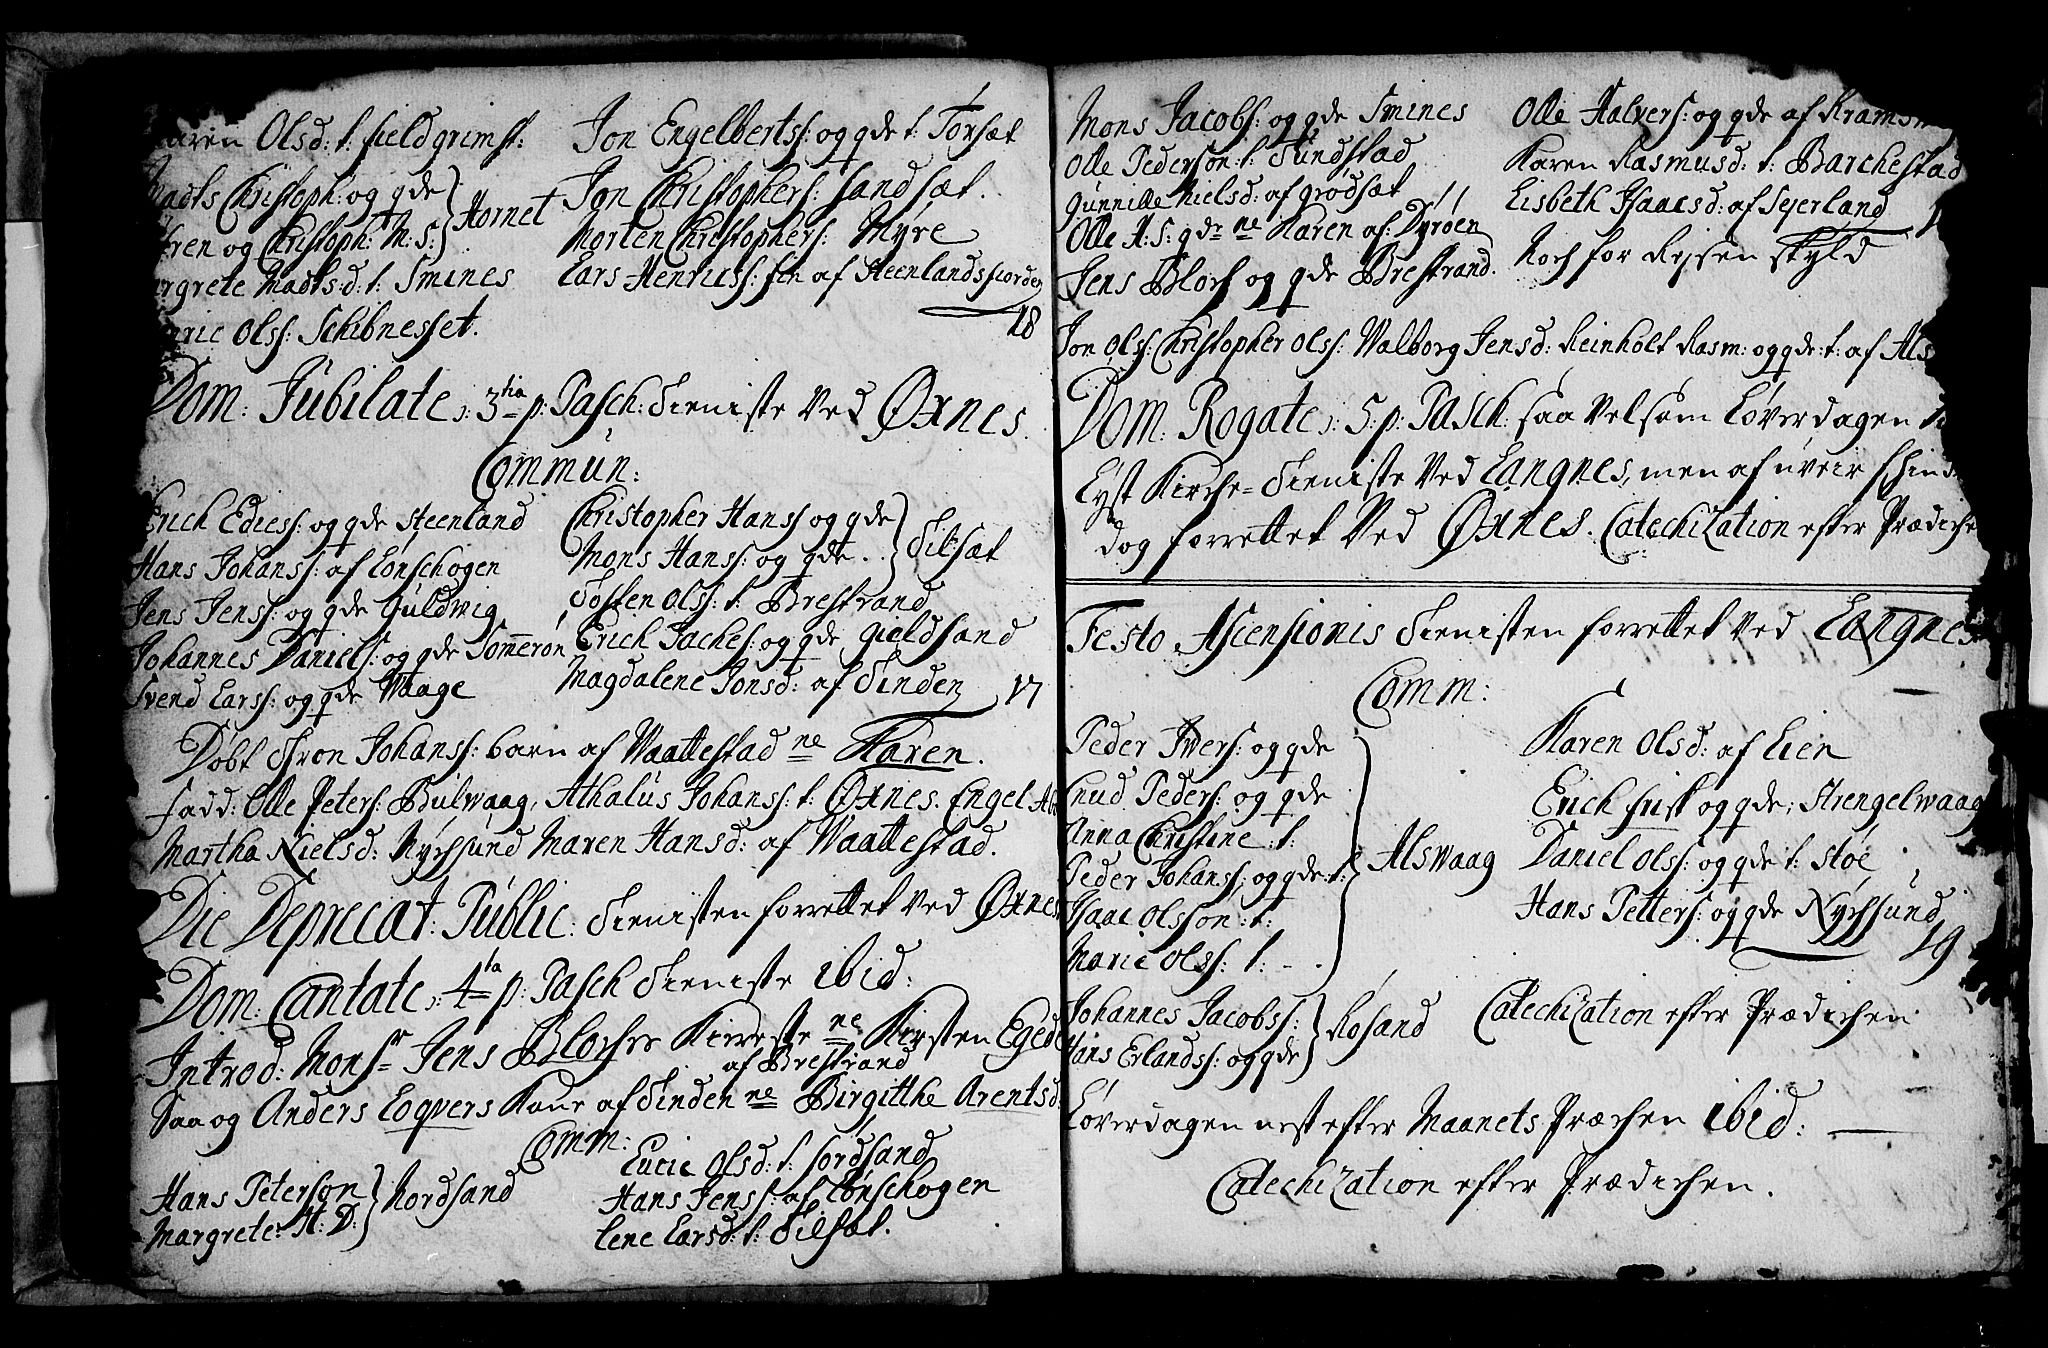 Karen Olsd: t. fieldgrimst:
Madts Christoph: og qde
Søfren og Christoph: M: S: } Hornet
Margrete Madtsd: t: Smines
Henric Olss: Schibnesset.
Jon Engelbertss: og qde t: Torsæt
Jon Christophers: Sandsæt.
Morten Christophers: Myre
Lars Henricss: fin af Steenlandsfiorden
18
Dom: Jubilate ɔ: 3tia p: Pasch: Tieniste Ved Øxnes.
Commun:
Erich Ediess: og qde Steenland
Hans Johanss: af Lonschogen
Jens Jenss: og qde Guldwig
Johannes Daniels: og qde Sommerøn
Svend Larss: og qde Waage
Christopher Hanss og qde
Mons Hanss: og qde. } Tilsæt
Tosten Olss: t: Brestrand
Erich Zaches: og qde gieldsand
Magdalene Jonsd: af Tinden
17
Døbt Tron Johanss: barn af Waattestad ne Karen.
fadd: Olle Peters: Bulwaag, Athalus Johanss: t: Øxnes. Engel
Martha Nielsd: Nyschsund Maren Hansd: af Waattestad.
Die Deprecat: Public: Tienisten forrettet Ved Øxnes
Dom: Cantate ɔ: 4ta p: Pasch Tieniste ibid:
Introd: Monsr Jens Blochs Kierreste ne Kirsten Egede
af Brestrand
Saa og Anders Loqvers Kone af Tinden ne Birgitthe Arentsd.
Comm:
Hans Peterson
Margrete H: D: } Nordsand
Lucie Olsd: t: fordsand
Hans Jenss: af Lonschogen
Lene Larsd: t: Tilsæt.
Mons Jacobs: og qde Smines
Olle Pederson: t: Tundstad
Gunnille Nielsd: af grodsæt
Olle H: S: qdr ne Karen af: Dyrøen
Jens Bloch og qde Brestrand.
Olle Halvers: og qde af
Karen Rasmusd: t: Barchestad
Lisbeth Isaacsd: af Sejerland
Noch for Rejsen skyld
Jon Olss: Christopher Olss: Walborg Jensd: Reinholt Rasm: og qde: t: af Als
Dom: Rogate ɔ: 5: p: Pasch: saa Velsom Løverdagen
Lyst Kirche-Tieniste Ved Langnes, men af uveir
dog forrettet Ved Øxnes. Catechization efter Prædichen
Festo Ascensionis Tienisten forrettet Ved Langnes
Comm:
Peder Ivers: og qde
Cnud Peders: og qde
Anna Christine: t:
Peder Johanss: og qde: t: } Alswaag
Isaac Olsson: t:
Marie Olss: t:
Johannes Jacobss:
Hans Erlandss: og qde } Rosand
Karen Olsd: af Lien
Erich frist og qde, Strengelwaag
Daniel Olss: og qde t: Støe
Hans Petters: og qde Nyschsund
19
Catechization efter Prædichen
Løverdagen nest efter Maanets Præchen ibid:
Catechization efter Prædichen.